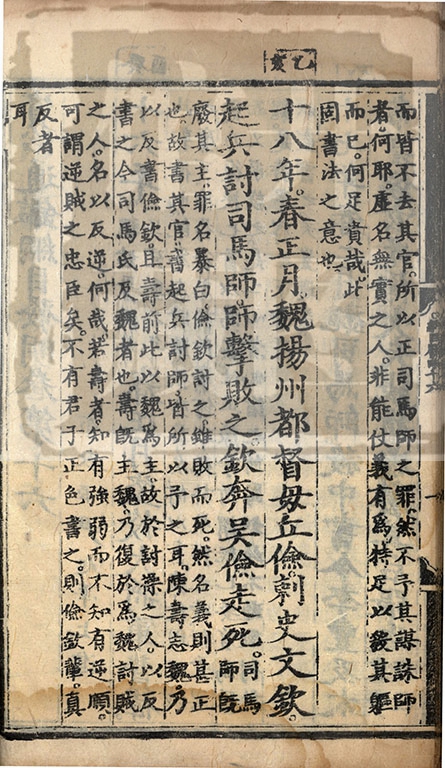 而皆不去其官。所以正司馬師之罪。然不予其謀誅師
者。何耶。虛名無實之人。非能仗義有爲。特足以殺其軀
而已。何足貴哉。此
固書法之意也。
乙亥
十八年。春正月。魏揚州都督毋丘儉。刺史文欽。
起兵討司馬師。師擊敗之。欽奔吳。儉走死。司馬師旣
廢其主。罪名暴白。儉欽討之。雖敗而死。然名義則甚正
也。故書其官。書起兵討師。皆所以予之耳。陳壽志魏。乃
以反書儉欽。且壽前此以魏爲主。故於討操之人。以反
書之。今司馬氏反魏者也。壽旣主魏。乃復於爲魏討賊
之人。名以反逆。何哉。若壽者。知有強弱而不知有逆順。
可謂逆賊之忠臣矣。不有君子正色書之。則儉欽輩。真
反者
耳